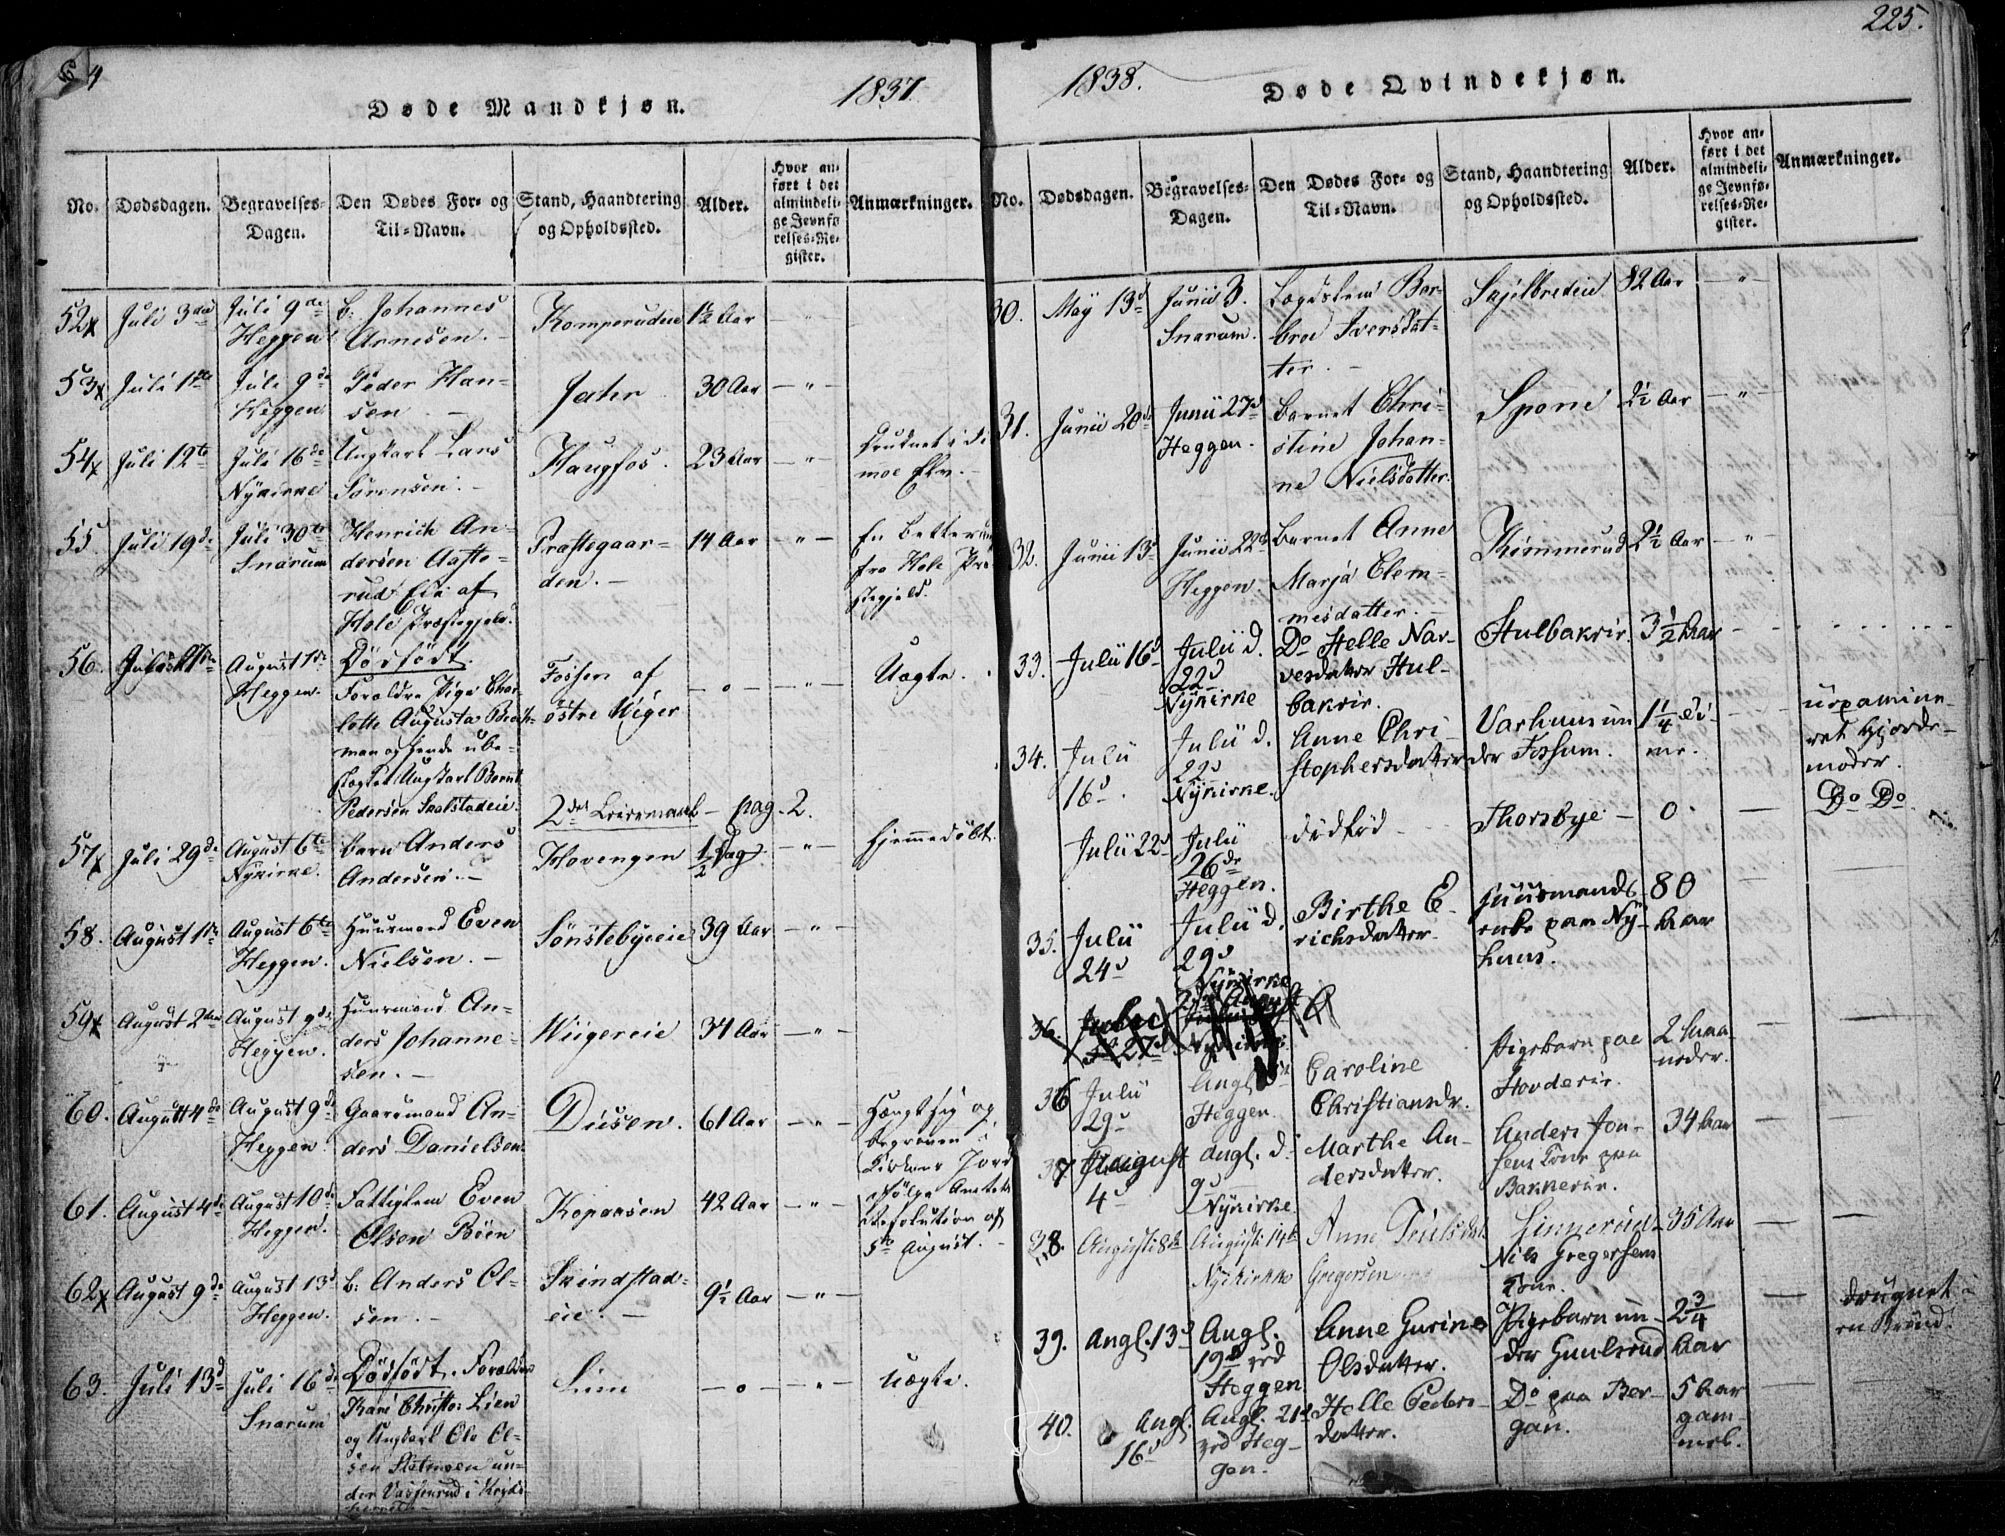 1837.
Døde Mandkjøn.
No.
Dødsdagen.
Begravelses-
Dagen.
Den Dødes For- og
Til-Navn.
Stand, Haandtering
og Opholdssted.
Alder.
Hvor an-
ført i det
almindeli-
ge Jevnfø-
relses-Re-
gister.
Anmærkninger.
52
Juli 3die
Juli 9de
Heggen
b. Johannes
Arnesen.
Komperudeie
1½ Aar
53
Juli
Juli 9de
Heggen
Peder Han-
sen
30 Aar
54
Juli 12te
Juli 16de
Nykirke
Ungkarl Lars
Sørensen.
Haugfos.
23 Aar
Druknet i Si-
moe Elv.
55
Juli 19de
Juli 30te
Snarum
Henrich An-
dersen
af
Hole Præstegjeld.
Præstegaar-
den.
14 Aar
En Betler
fra Hole Præ-
stegjeld.
56.
August
Heggen
Dødfødt.
Forældre Pige Char-
lotte Augusta
man og hende
Ungkarl Bernt
Pedersen
Fossen af
østre Wiger
Uægte.
2det Leiermaal - pag. 2.
57
Juli 29de
August 6te
Nykirke
barn Anders
Andersen.
Hovengen
½ Dag
hjemmedøbt.
58.
August 1ste
August 6te
Heggen.
Huusmand Even
Nielsen.
Sønstebyeeie
39 Aar
59
August 2den
August 9de
Heggen.
Huusmand An-
ders Johanne-
sen.
Wiigereie
34 Aar
60.
August 4de
August 9de
Heggen
Gaardmand An-
ders Danielsen
Diisen.
61 Aar
Hængt sig og
begraven i
Kirkens Jord
ifølge Amtets
Resolution af
5te August.
61.
August 4de
August 10de
Heggen.
Fattiglem Even
Olsen Böen
Kopaasen
42 Aar
62
August 9de
August 13d
Heggen.
b. Anders Ol-
sen.
Skindstad-
eie.
9½ Aar
63.
Juli 13d
Juli 16de
Snarum
Dødfødt. Forældre
Kari Christo: Lien
og Ungkarl Ole Ol-
sen un-
der i
Lien
Uægte.
225.
1838.
Døde Qvindekjøn.
No.
Dødsdagen.
Begravelses-
Dagen.
Den Dødes For- og
Til-Navn.
Stand, Haandtering
og Opholdssted.
Alder.
Hvor an-
ført i det
almindeli-
ge Jevnfø-
relses-Re-
gister.
Anmærkninger.
30.
May 13d
Junii 3.
Snarum.
Lægdslem Bar-
broe Iversdat-
ter.
82 Aar
31.
Junii 20de
Junii 27d
Heggen.
barnet Chri-
stine Johan-
ne Nielsdatter.
Spone
2½ Aar
32.
Junii 13d
Junii 22de
Heggen
barnet Anne
Marja Clem-
mesdatter.
Kimmerud
2½ Aar
33.
Julii 16d
Julii d.
22d
Nykirke
Do Helle Nar-
vesdatter Hul-
bakeie.
Hulbakeie.
3½ Aar
34.
Julii
16d.
Julii d.
22d
Nykirke.
Anne Chri-
stophersdatter
un-
der Fossum.
1¼ Ti-
me.
uexamine-
ret Hjorde-
moder.
Julii 22d
Julii
26de
Heggen.
dödfød
Thorsbye
0.
Do Do
35.
Julii
24d
Julii d.
29d
Nykirke
Birthe E-
richsdatter.
Huusmands
enke paa Ny-
huus.
80
Aar
36.
27d
36
Julii
29d
Augt.
Heggen.
Caroline
Christiansdr.
Pigebarn paa
Hovdeeie.
2 Maa-
neder.
37
August
4d
Augt. d.
9d
Nykirke
Marthe An-
dersdatter.
Anders Jon-
sens Kone paa
Bakkeeie.
34 Aar
38.
August 8de
August 14de
Nyekirke
Anne Truelsdat.
Gregersen
Nils Gregersens
Kone.
35 Aar
39.
Augt. 13d
Augt.
19d ved
Heggen
Anne Gurine
Olsdatter.
Pigebarn un-
der Gunlsrud
2¾
Aar
drugnet i
en Brønd.
40.
Augt.
16d
Augt. 21d
ved Heg-
gen.
Helle Peders-
datter.
Do paa Ber-
gan.
5 Aar
gam-
mel.